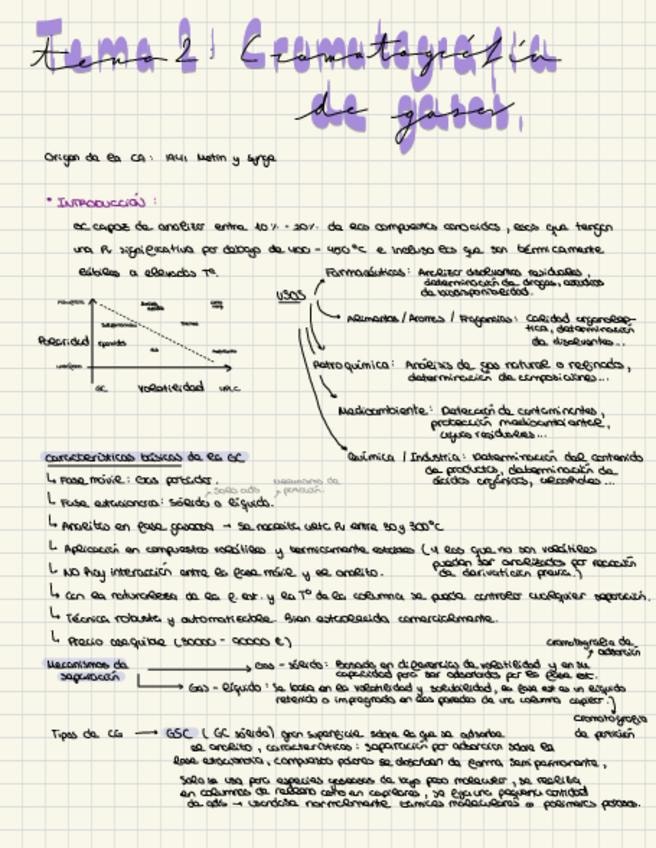 Tema 2: Cromatografía
de gases.
Origen de la CG: 1941 Martin y Synge
• INTRODUCCIÓN:
GC capaz de analizar entra 10% - 20% de los compuestos conocidos, esos que tengan
una Pv significativa por debajo de 400 - 450°C e incluso los que son térmicamente
lábiles a elevadas Tº.
Polaridad
GC volatilidad HPLC
USOS
Farmacéuticos: Analizar disolventes residuales,
determinación de drogas, estudios
de biodisponibilidad.
Alimentos / Aromas / Fragancias: Calidad organolép-
tica, determinación
de disolventes...
Petroquímica: Análisis de gas natural o refinados,
determinación de composiciones...
Medioambiente: Detección de contaminantes,
protección medioambiental,
aguas residuales...
Química / Industria: Determinación del contenido
de productos, determinación de
ácidos orgánicos, alcoholes...
Características básicas de la GC
Fase móvil: Gas portador.
Fase estacionaria: Sólido o líquido.
Analitos en fase gaseosa → Se necesita una Pv entre 30 y 300°C
Aplicación en compuestos volátiles y térmicamente estables (y los que no son volátiles
pueden ser analizados por reacción
de derivatización previa.)
NO hay interacción entre la fase móvil y el analito.
Con la naturaleza de la f. est. y la Tº de la columna se puede controlar cualquier separación.
Técnica robusta y automatizable. Bien establecida comercialmente.
Precio asequible (30000 - 90000 €)
Mecanismos de
separación
cromatografía de
adsorción
Gas - sólido: Basada en diferencias de volatilidad y en su
capacidad para ser adsorbidos por la fase est.
Gas - líquido: Se basa en la volatilidad y solubilidad, la fase est es un líquido
retenido o impregnado en las paredes de una columna capilar.
cromatografía
de partición
Tipos de CG → GSC (GC sólido) gran superficie sobre la que se adsorbe
el analito, características: separación por adsorción sobre la
fase estacionaria, compuestos polares se adsorben de forma semipermanente,
solo se usa para especies gaseosas de bajo peso molecular, se realiza
en columnas de relleno como en capilares, se fija una pequeña cantidad
de ads → usándose normalmente tamices moleculares o polímeros porosos.